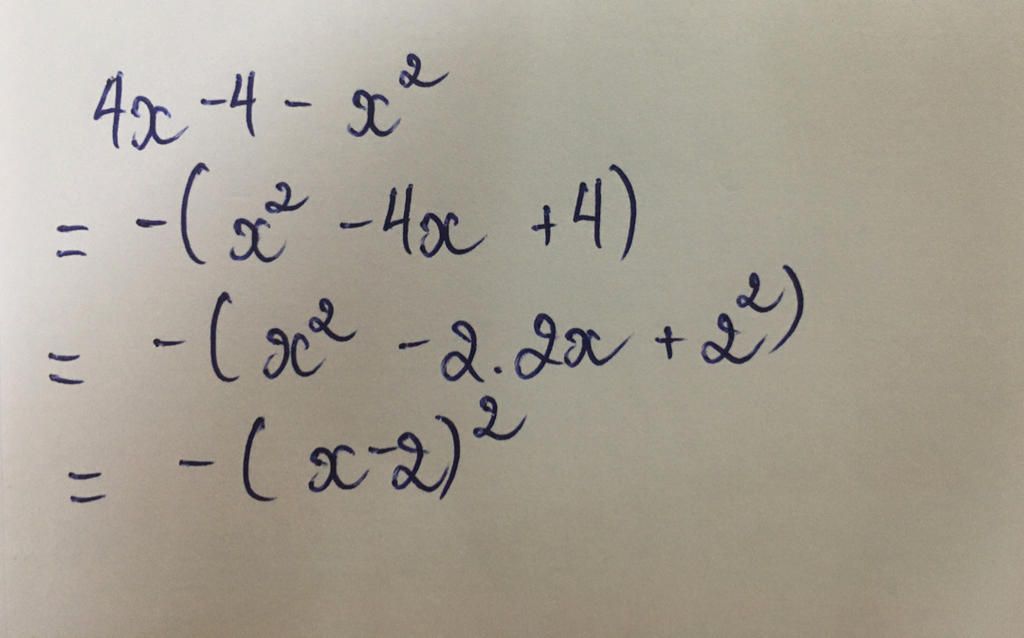 4x - 4 - x²
= -(x² - 4x + 4)
= -(x² - 2.2x + 2²)
= -(x-2)²